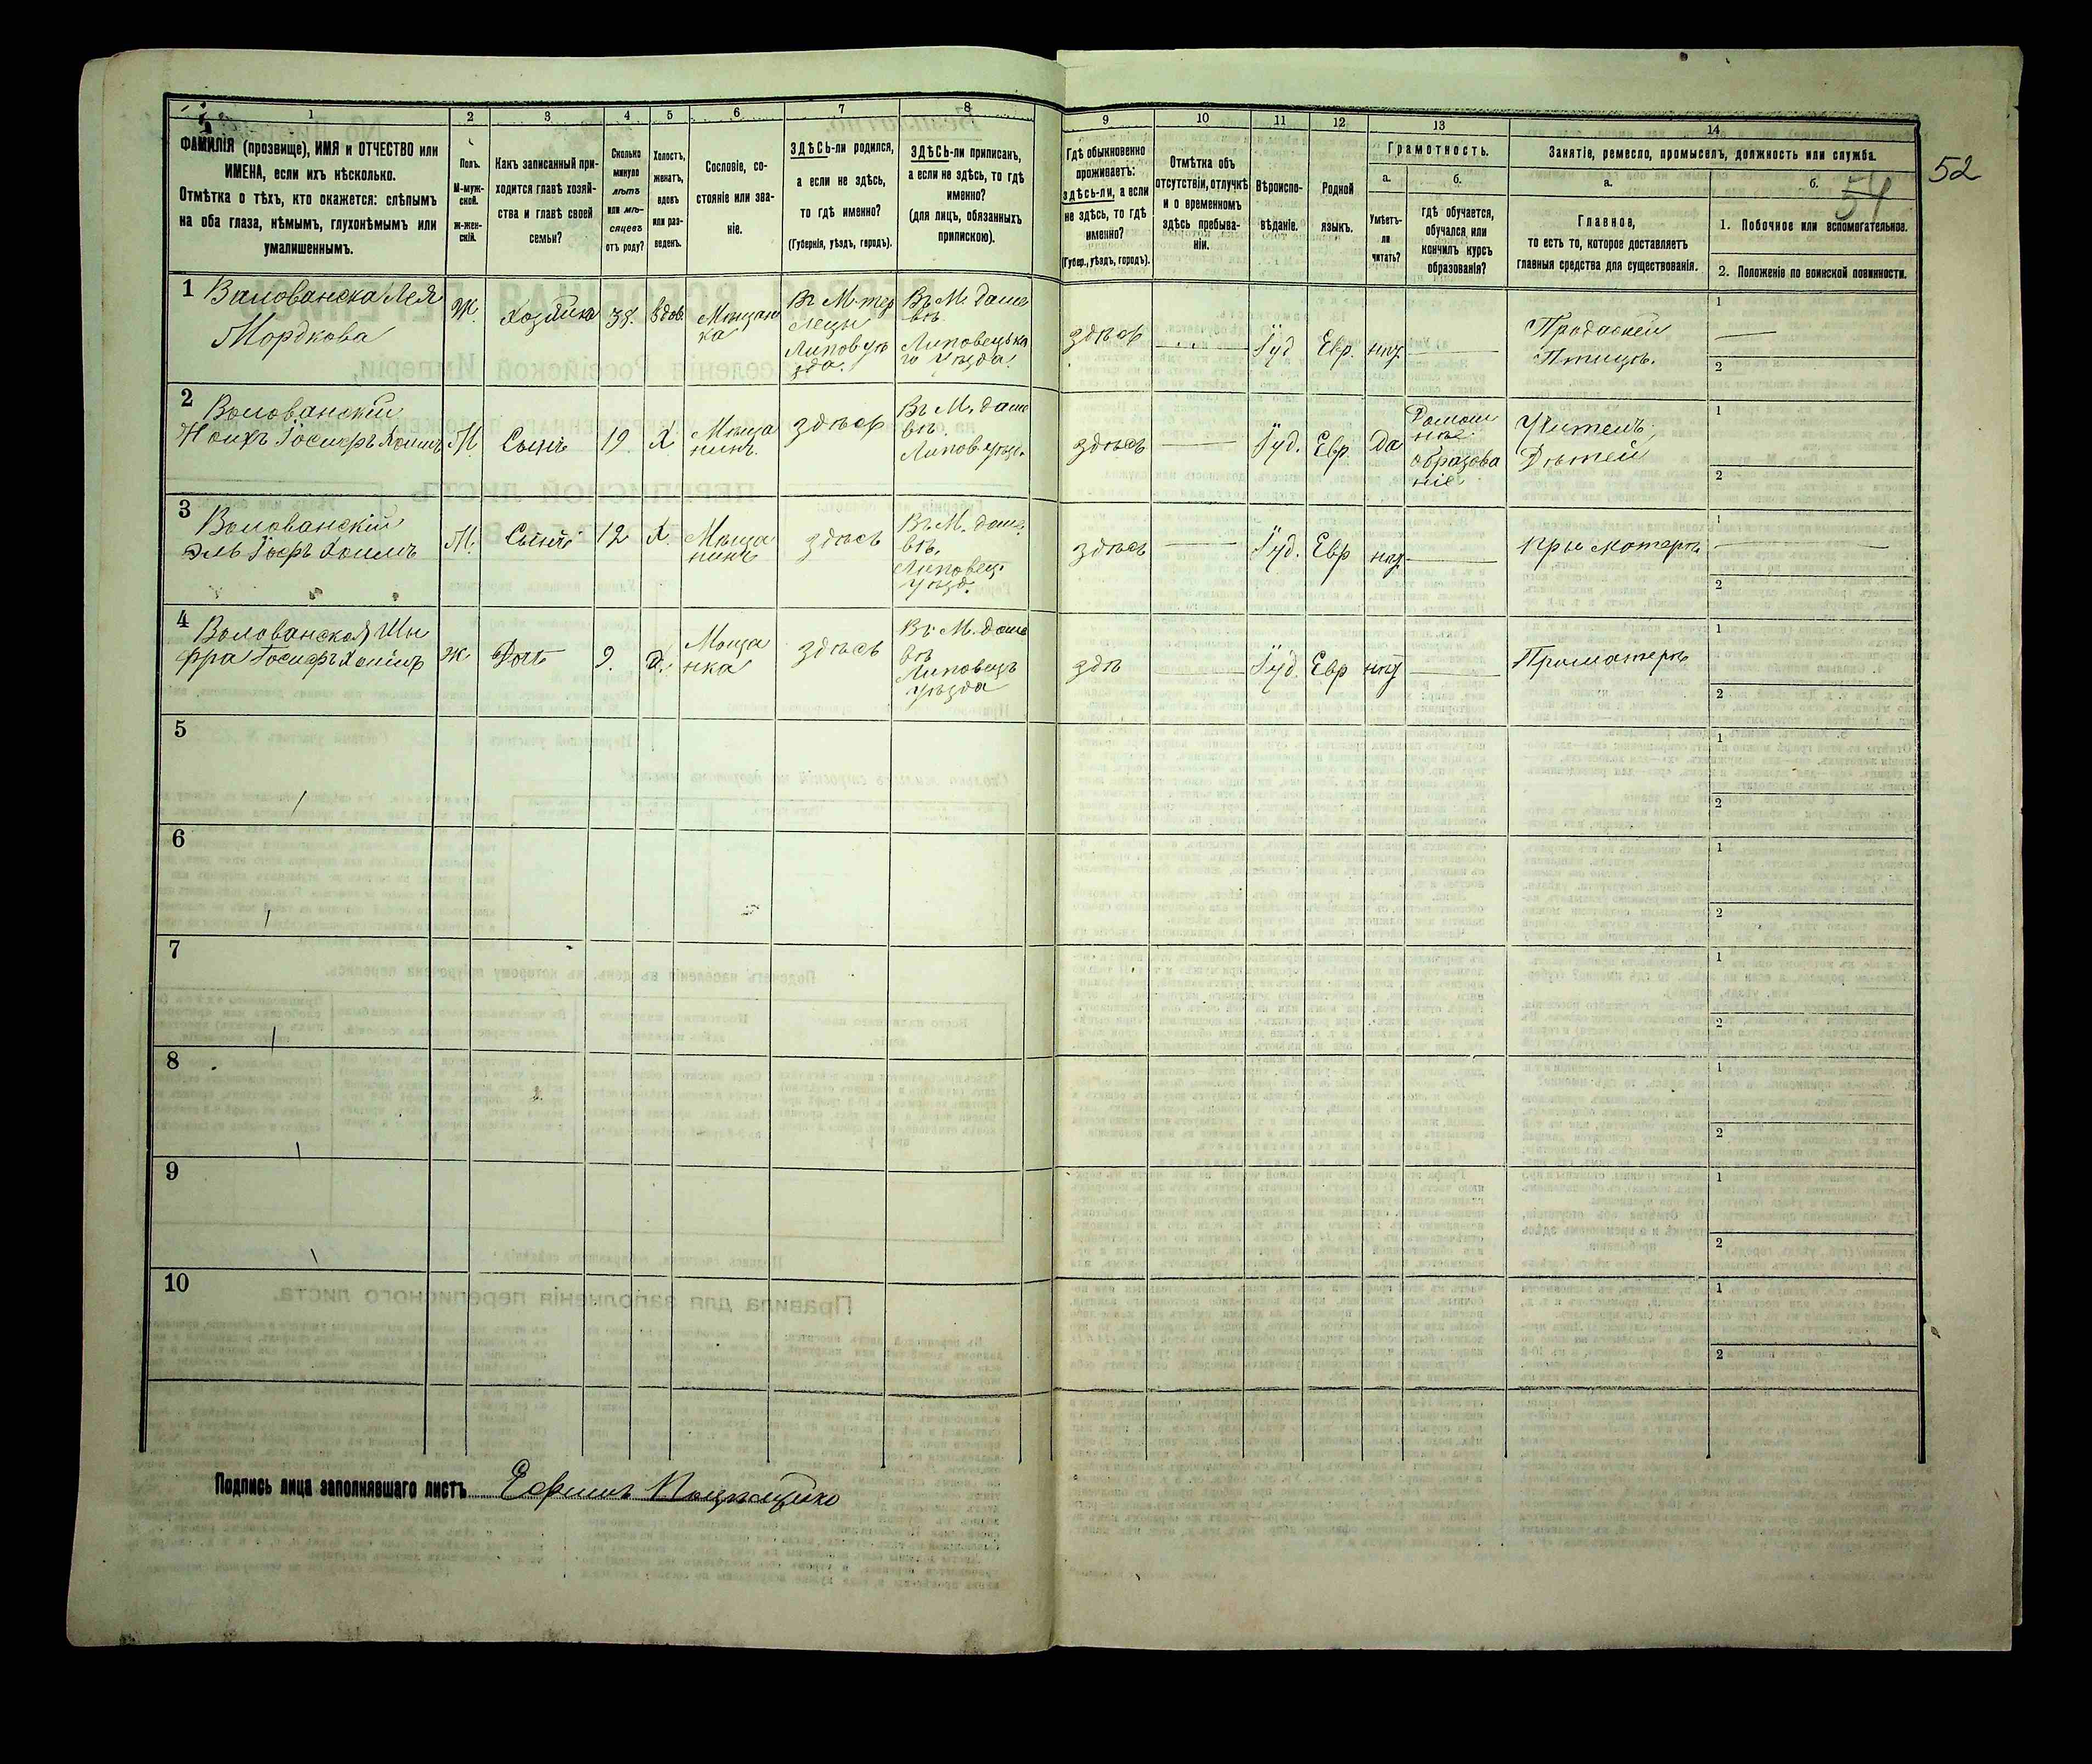 52
54
1
2
3
4
5
6
7
8
9
10
11
12
13
14
ФАМИЛІЯ (прозвище), ИМЯ и ОТЧЕСТВО или
ИМЕНА, если ихъ нѣсколько.
Отмѣтка о тѣхъ, кто окажется: слѣпымъ
на оба глаза, нѣмымъ, глухонѣмымъ или
умалишеннымъ.
Полъ.
М-муж-
ской.
Ж-жен-
скій.
Какъ записанный при-
ходится главѣ хозяй-
ства и главѣ своей
семьи?
Сколько
минуло
лѣтъ
или мѣ-
сяцевъ
отъ роду?
Холостъ,
женатъ,
вдовъ
или раз-
веденъ.
Сословіе, со-
стояніе или зва-
ніе.
ЗДѢСЬ-ли родился,
а если не здѣсь,
то гдѣ именно?
(Губернія, уѣздъ, городъ).
ЗДѢСЬ-ли приписанъ,
а если не здѣсь, то гдѣ
именно?
(для лицъ, обязанныхъ
припискою).
Гдѣ обыкновенно
проживаетъ:
здѣсь-ли, а если
не здѣсь, то гдѣ
именно?
(Губер., уѣздъ, городъ).
Отмѣтка объ
отсутствіи, отлучкѣ
и о временномъ
здѣсь пребыва-
ніи.
Вѣроиспо-
вѣданіе.
Родной
языкъ.
Грамотность.
а.
Умѣетъ-
ли
читать?
б.
гдѣ обучается,
обучался или
кончилъ курсъ
образованія?
Занятіе, ремесло, промыселъ, должность или служба.
а.
Главное,
то есть то, которое доставляетъ
главныя средства для существованія.
б.
1. Побочное или вспомогательное.
2. Положеніе по воинской повинности.
1
Валованска Лея
Мордкова
Ж.
Хозяйка
38.
вдов.
Мещан
ка
Въ М.
Липов уѣ
зда.
Въ М. Даше
вѣ
Липовецька
го уѣзда.
здѣсь
Іуд
Евр.
нѣт
Продажей
Птицъ.
1
2
2
Волованскій
Іосифъ Хаимъ
М.
Сынъ
19.
Х
Мѣща
нинъ.
здѣсь
Въ М. Даше
вѣ.
Липов. уѣзд.
здѣсь
Іуд.
Евр.
Да
Домаш
нее
образова
ніе
Учитель
Дѣтей
1
2
3
Волованскій
Хаимъ
М.
Сынъ
12
Х.
Мѣща
нинъ
здѣсь
Въ М. Даше
вѣ.
Липовец.
уѣзд.
здѣсь
Іуд.
Евр
нѣт
При матерѣ
1
2
4
Волованская Ши
фра Іосифъ Хаимъ
Ж
Дочь
9.
Д.
Мѣща
нка
здѣсь
Въ М. Даше
вѣ
Липовецъ
уѣзда
здѣ
Іуд.
Евр
нѣт
При матерѣ
1
2
5
1
2
6
1
2
7
1
2
8
1
2
9
1
2
10
1
2
Подпись лица заполнявшаго листъ Ефимъ